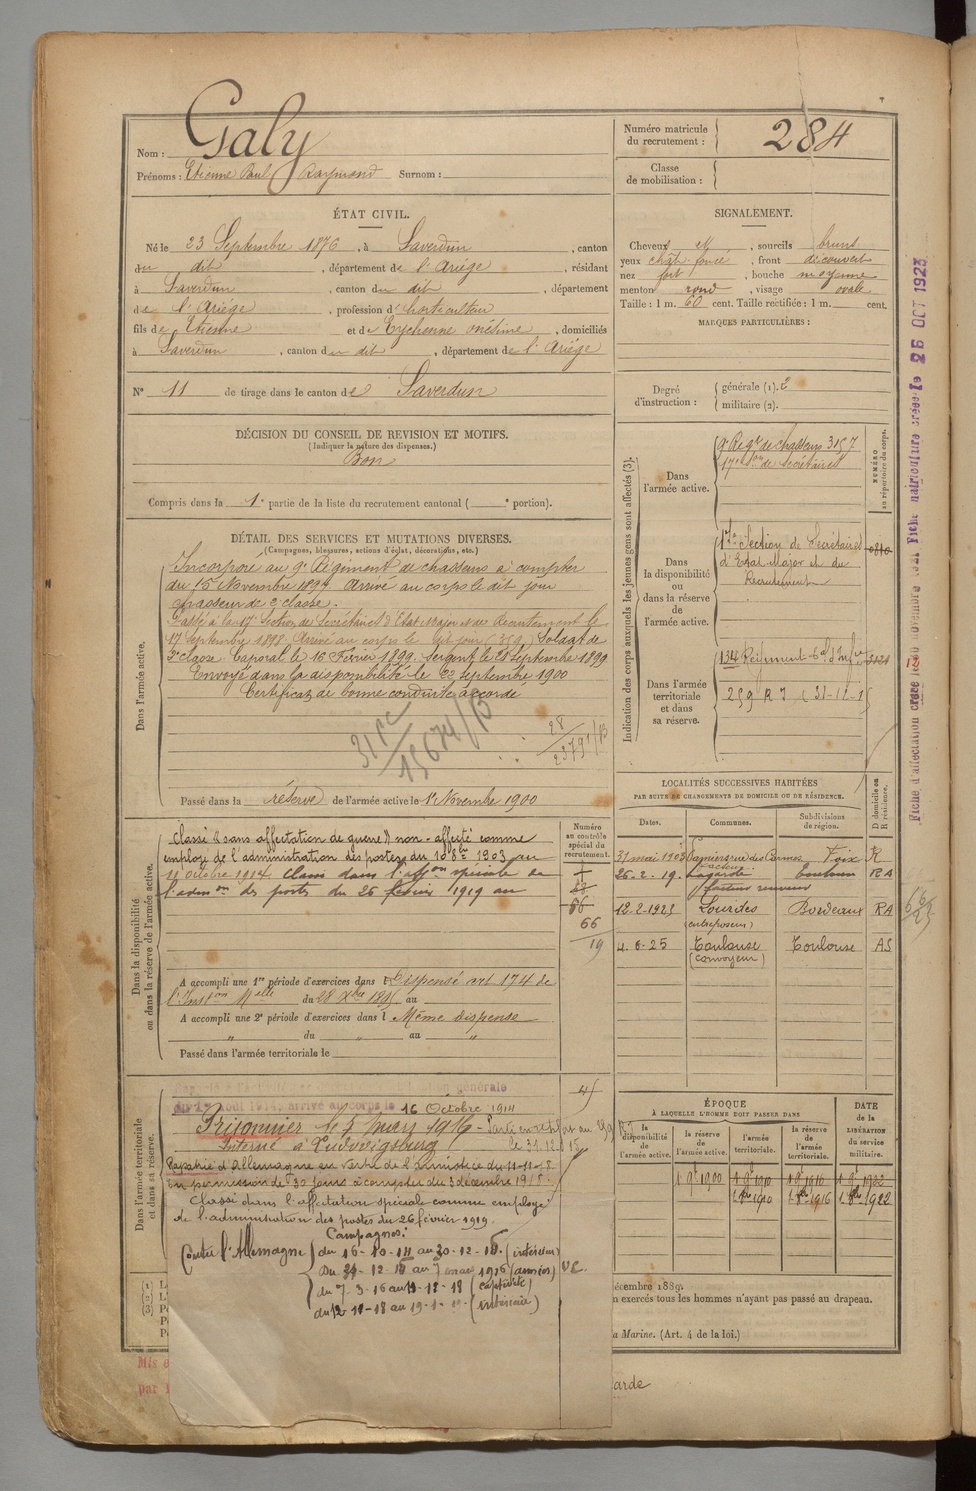 Galy
Nom :
Prénoms : Etienne Paul Raymond Surnom :
Numéro matricule du recrutement : 284
Classe de mobilisation :
ÉTAT CIVIL.
Né le 23 Septembre 1876, à Saverdun, canton
du dit, département de l'Ariège, résidant
à Saverdun, canton du dit, département
de l'Ariège, profession d'horticulteur
fils de Etienne et de Eychenne onézime, domiciliés
à Saverdun, canton du dit, département de l'Ariège
N° 11 de tirage dans le canton de Saverdun
SIGNALEMENT.
Cheveux et, sourcils bruns
yeux chât. foncé, front découvert
nez fort, bouche moyenne
menton rond, visage ovale
Taille : 1 m. 60 cent. Taille rectifiée : 1 m. cent.
MARQUES PARTICULIÈRES :
Degré d'instruction : générale (1). 2
militaire (2).
DÉCISION DU CONSEIL DE REVISION ET MOTIFS.
(Indiquer la nature des dispenses.)
Bon
Compris dans la 1e partie de la liste du recrutement cantonal ( e portion).
DÉTAIL DES SERVICES ET MUTATIONS DIVERSES.
(Campagnes, blessures, actions d'éclat, décorations, etc.)
Dans l'armée active.
Incorporé au 9e Régiment de chasseurs à compter
du 15 Novembre 1897 Arrivé au corps le dit jour
chasseur de 2e classe.
Passé à la 17e Section de Secrétaires d'Etat Major et de Recrutement le
17 Septembre 1898. Arrivé au corps le dit jour Soldat de
2e classe Caporal le 16 Février 1899. Sergent le 21 Septembre 1899
Envoyé dans la disponibilité le 22 Septembre 1900
Certificat de bonne conduite accordé
Passé dans la réserve de l'armée active le 1er Novembre 1900
Indication des corps auxquels les jeunes gens sont affectés (3).
NUMÉRO au répertoire du corps.
Dans l'armée active.
9e Regt de chasseurs 3157
17e Son de Secrétaires
Dans la disponibilité ou dans la réserve de l'armée active.
17e Section de Secrétaires
d'Etat-Major et du
Recrutement
Dans l'armée territoriale et dans sa réserve.
134 Régiment tal d'Infie
259 R I
LOCALITÉS SUCCESSIVES HABITÉES
PAR SUITE DE CHANGEMENTS DE DOMICILE OU DE RÉSIDENCE.
Dates. Communes. Subdivisions de région. D domicile ou R résidence.
31 mai 1903 Pamiers rue des Carmes Foix R
facteur
26-2-19. Lagarde Toulouse RA
facteur receveur
12-2-1923 Lourdes Bordeaux RA
(entreposeur)
4-6-25 Toulouse Toulouse AS
(convoyeur)
Dans la disponibilité ou dans la réserve de l'armée active.
Numéro au contrôle spécial du recrutement.
Classé "sans affectation de guerre" non-affecté comme
employé de l'administration des postes du 10 8bre 1903 au
11 octobre 1914 Classé dans l'affon spéciale de
l'admon des postes du 26 février 1919 au
66
19
A accompli une 1re période d'exercices dans Dispensé art 174 de
l'Inston Melle du 28 Xbre 1895 au
A accompli une 2e période d'exercices dans l Même dispense
„ du „ au „
Passé dans l'armée territoriale le
Dans l'armée territoriale et dans sa réserve.
août 1914, arrivé au corps le 16 Octobre 1914
Prisonnier le 7 mars 1916
Interné à Ludwigsburg
Rapatrié d'Allemagne en vertu de l'armistice du 11-11-18
En permission de 30 jours à compter du 3 décembre 1918.
Classé dans l'affectation spéciale comme employé
de l'administration des postes du 26 février 1919.
Campagnes :
Contre l'Allemagne
du 16-10-14 au 30-12-15 (intérieur)
du 31-12-15 au 7 mars 1916 (armées)
du 7-3-16 au 11-12-18 (captivité)
(intérieur)
ÉPOQUE
À LAQUELLE L'HOMME DOIT PASSER DANS
la disponibilité de l'armée active. la réserve de l'armée active. l'armée territoriale. la réserve de l'armée territoriale.
DATE de la LIBÉRATION du service militaire.
1 9e 1900 1 9e 1910 1 9e 1916 1 9e 1922
1910 1916 1922
décembre 1889.
n exercés tous les hommes n'ayant pas passé au drapeau.
a Marine. (Art. 4 de la loi.)
arde
Fiche matriculaire créée le 26 OCT 1923